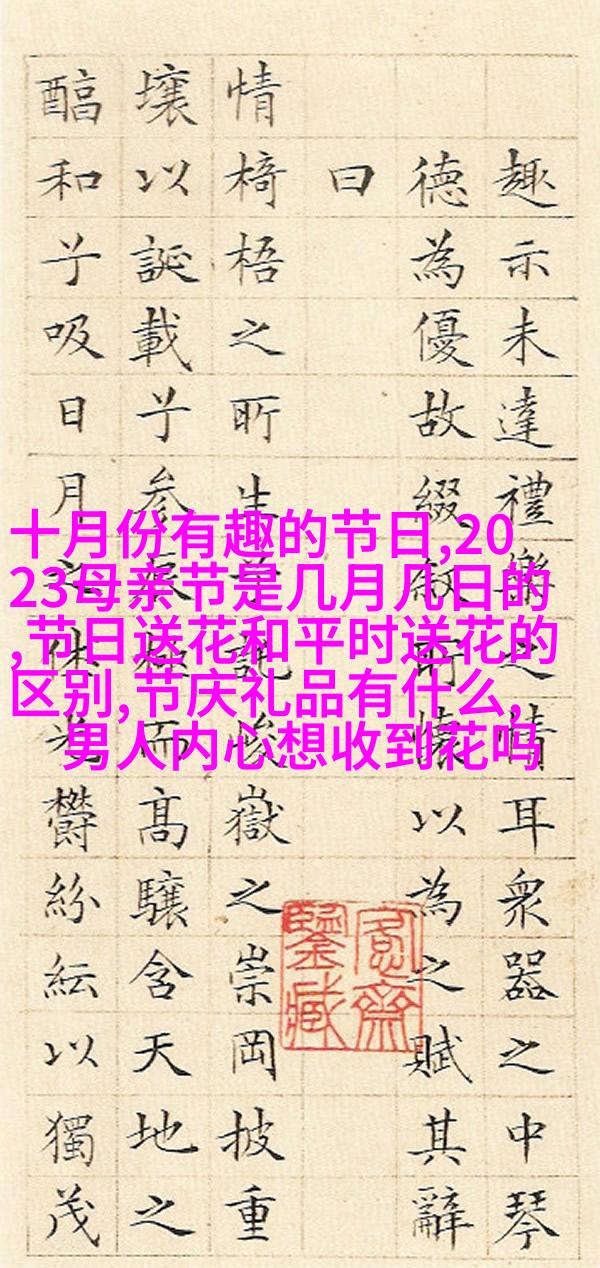 趣示未達禮樂之情耳衆器之中琴
德為優故綴敘所懷以為之賦其辭
曰
情椅梧之所生兮託峻嶽之崇岡披重
壤以誕載兮参辰極而高驤含天地之
醕和兮吸日月之休光鬱紛紜以獨茂
十月份有趣的节日,20
23母亲节是几月几日的
,节日送花和平时送花的
区别,节庆礼品有什么,
男人内心想收到花吗
愙齋
鑒藏